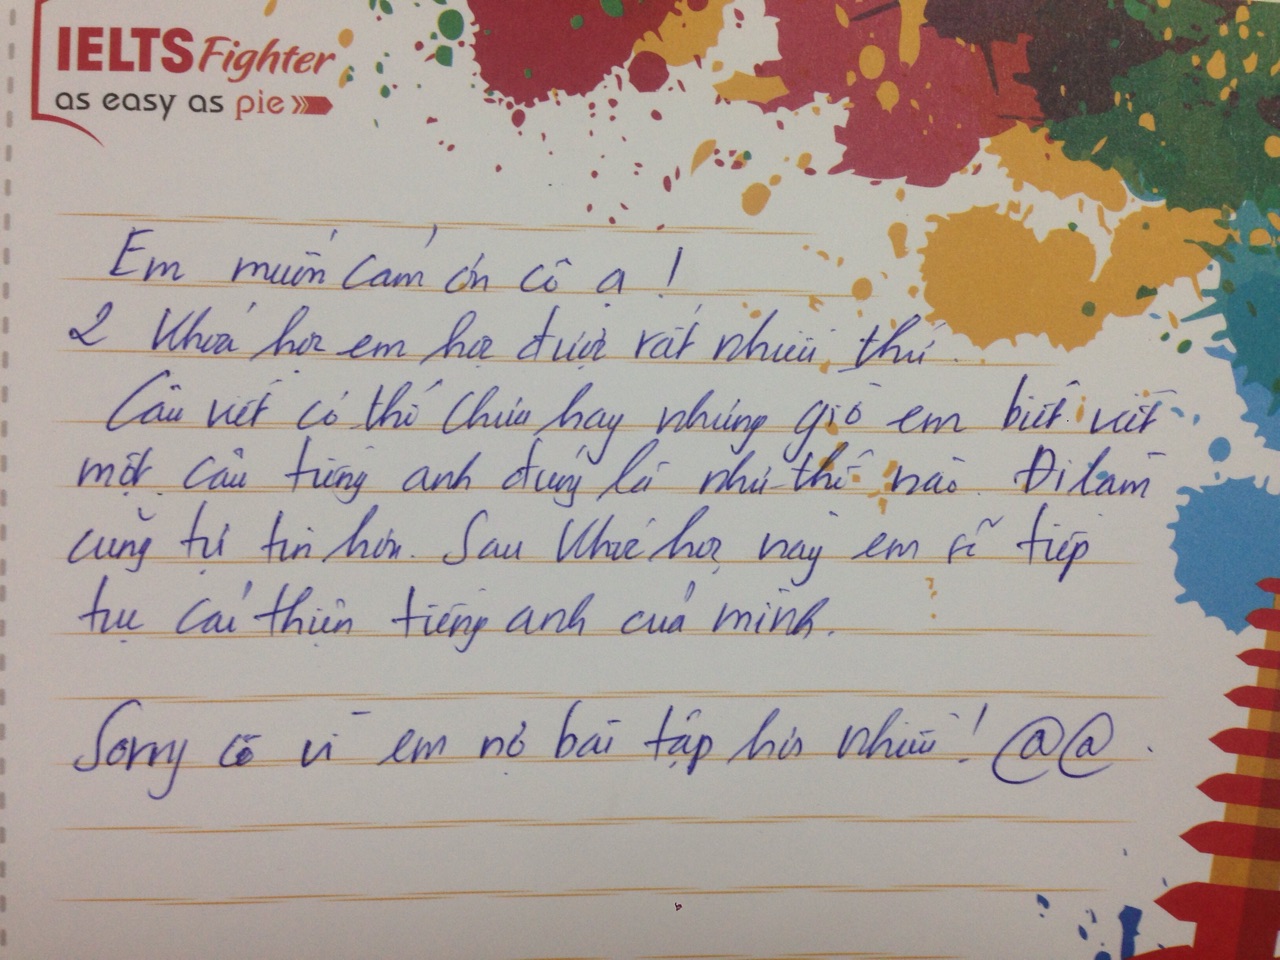 IELTS Fighter
as easy as pie
Em muốn cảm ơn cô ạ !
2 khoá học em học được rất nhiều thứ.
Câu viết có thể chưa hay nhưng giờ em biết viết
một câu tiếng anh đúng là như thế nào. Đi làm
cũng tự tin hơn. Sau khoá học này em sẽ tiếp
tục cải thiện tiếng anh của mình.
Sorry cô vì em nợ bài tập hơi nhiều ! @@.